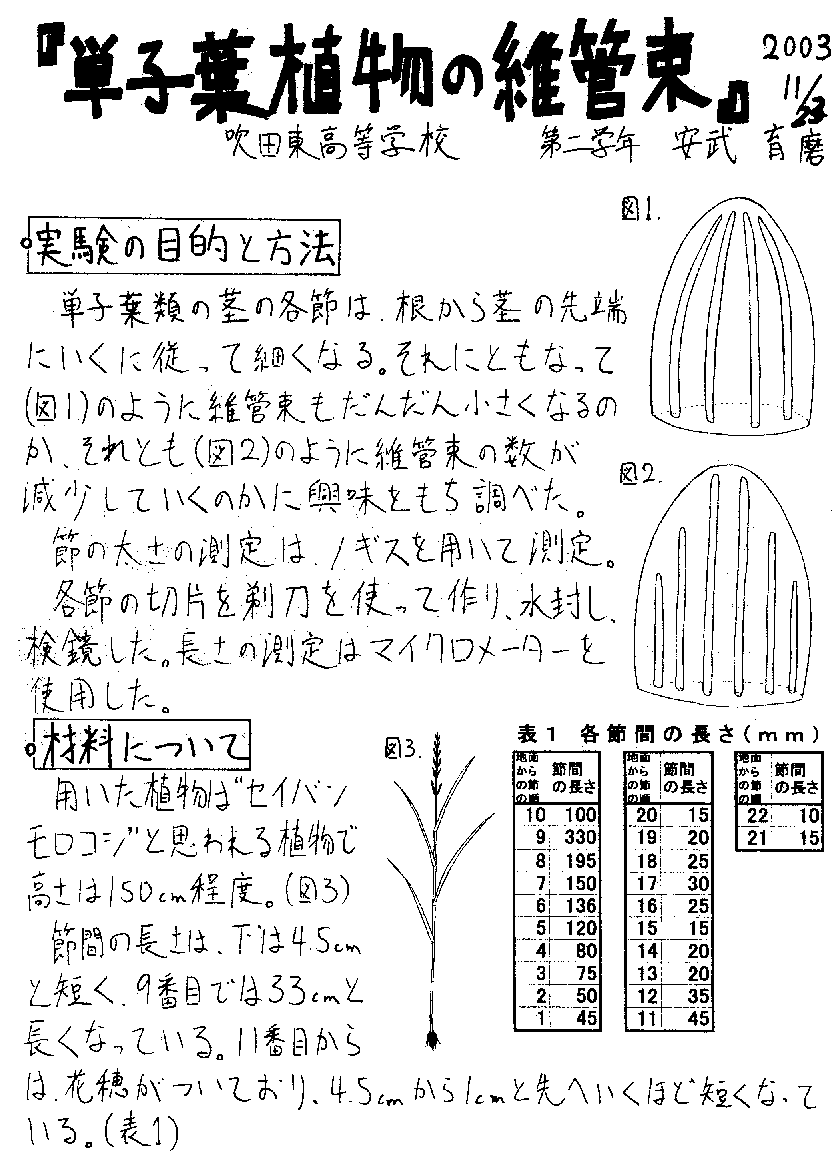 『単子葉植物の維管束』
2003
11/23
吹田東高等学校 第二学年 安武 育磨
図1.
実験の目的と方法
単子葉類の茎の各節は、根から茎の先端
にいくに従って細くなる。それにともなって
(図1)のように維管束もだんだん小さくなるの
か、それとも(図2)のように維管束の数が
減少していくのかに興味をもち調べた。
図2.
節の太さの測定は、ノギスを用いて測定。
各節の切片を剃刀を使って作り、水封し、
検鏡した。長さの測定はマイクロメーターを
使用した。
材料について
用いた植物は"セイバン
モロコシ"と思われる植物で
高さは150cm程度。(図3)
節間の長さは、下は4.5cm
と短く、9番目では33cmと
長くなっている。11番目から
は、花穂がついており、4.5cmから1cmと先へいくほど短くなって
いる。(表1)
図3.
表1 各節間の長さ(mm)
地面からの節の順 節間の長さ
10 100
9 330
8 195
7 150
6 136
5 120
4 80
3 75
2 50
1 45
地面からの節の順 節間の長さ
20 15
19 20
18 25
17 30
16 25
15 15
14 20
13 20
12 35
11 45
地面からの節の順 節間の長さ
22 10
21 15